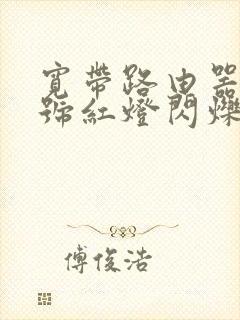 寬帶路由器
號紅燈閃爍
傅俊浩